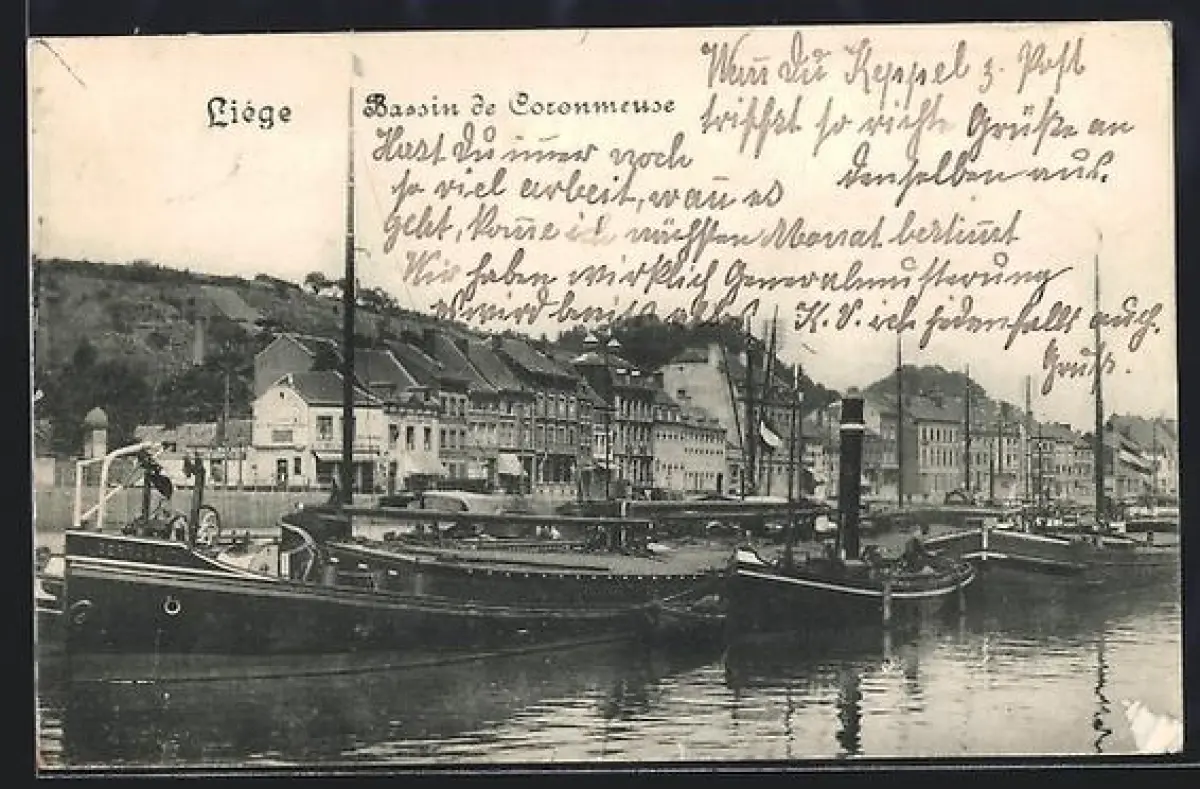 Liége
Bassin de Coronmeuse
Wan̄ Du Keppel z. Post
triffst so richte Grüße an
denselben aus.
Hast Du im̄er noch
so viel arbeit, wan̄ es
geht, kom̄e ich nächsten Monat bestim̄t
Wir haben wirklich Generalmusterung
es wird
K.V. ich jedenfalls auch.
Gruß.